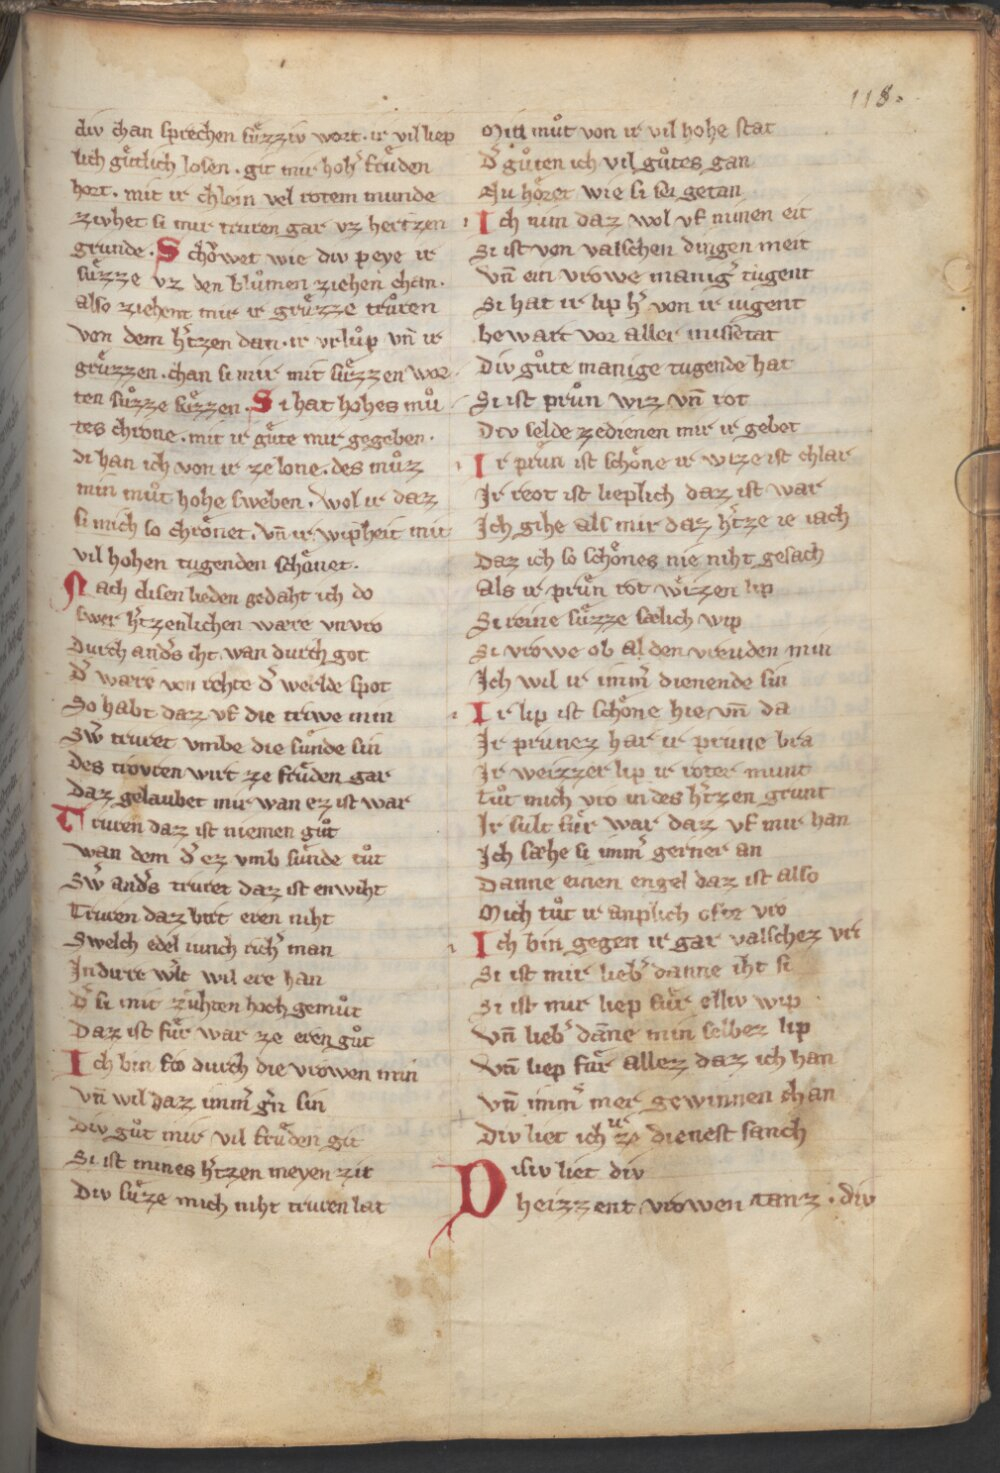 118.
div chan sprechen sůzziv wort. ir vil liep
lich gůtlich losen. git mir hoh' frůden
hort. mit ir chlein vel rotem munde
zivhet si mir truren gar vz hertzen
grunde. Schówet wie div peye ir
sůzze vz den blůmen ziehen chan.
also ziehent mir ir grůzze trůren
von dem h'tzen dan. ir vrlůp vn̄ ir
grůzzen. chan si mir mit sůzzen wor
ten sůzze bůzzen. Si hat hohes mů
tes chrone. mit ir gůte mir gegeben.
di han ich von ir ze lone. des můz
min můt hohe sweben. Wol ir daz
si mich so chrónet. vn̄ ir wipheit mit
vil hohen tugenden schónet.
Nach disen lieden gedaht ich do
swer h'tzenlichen wære vnvro
Durch and's iht wan durch got
D' wære von rehte d' werlde spot
So habt daz vf die triwe min
Sw' truret vmbe die sůnde sin
Des trovren wirt ze frůden gar
Daz gelaubet mir wan ez ist war
Truren daz ist niemen gůt
wan dem d' ez vmb sůnde tůt
Sw' and's truret daz ist enwiht
Truren daz birt eren niht
Swelch edel iunch rich' man
In dirre w'lt wil ere han
D' si mit zůhten hoch gemůt
Daz ist fůr war ze eren gůt
Ich bin fro durch die vrowen min
vn̄ wil daz imm' g'n sin
Div gůt mir vil frůden git
Si ist mines h'tzen meyen zit
Div sůze mich niht truren lat
Min můt von ir vil hohe stat
D' gůten ich vil gůtes gan
Nu hóret wie si si getan
Ich nim daz wol vf minen eit
Si ist von valschen dingen meit
Vn̄ ein vrowe manig' tugent
Si hat ir lip h' von ir iugent
bewart vor aller missetat
Div gůte manige tugende hat
Si ist průn wiz vn̄ rot
Div selde ze dienen mir ir gebot
Ir průn ist schóne ir wize ist chlar
Ir reot ist lieplich daz ist war
Ich gihe als mir daz h'tze ie iach
Daz ich so schónes nie niht gesach
Als ir průn rot wizzen lip
Si reine sůzze sælich wip
Si vrowe ob al den vreuden min
Ich wil ir imm' dienende sin
Ir lip ist schóne hie vn̄ da
Ir prunez har ir prune bra
Ir weizzer lip ir roter munt
Tůt mich vro in des h'tzen grunt
Ir sult fůr war daz vf mir han
Ich sæhe si imm' gerner an
Danne einen engel daz ist also
Mich tůt ir anplich ofte vro
Ich bin gegen ir gar valschez vri
Si ist mir lieb' danne iht si
Si ist mir liep fůr elliv wip
Vn̄ lieb' dāne min selbez lip
Vn̄ liep fůr allez daz ich han
Vn̄ imm' mer gewinnen chan
Div liet ich ir ze dienest sanch
Disiv liet div
heizzent vrowen tanz. div